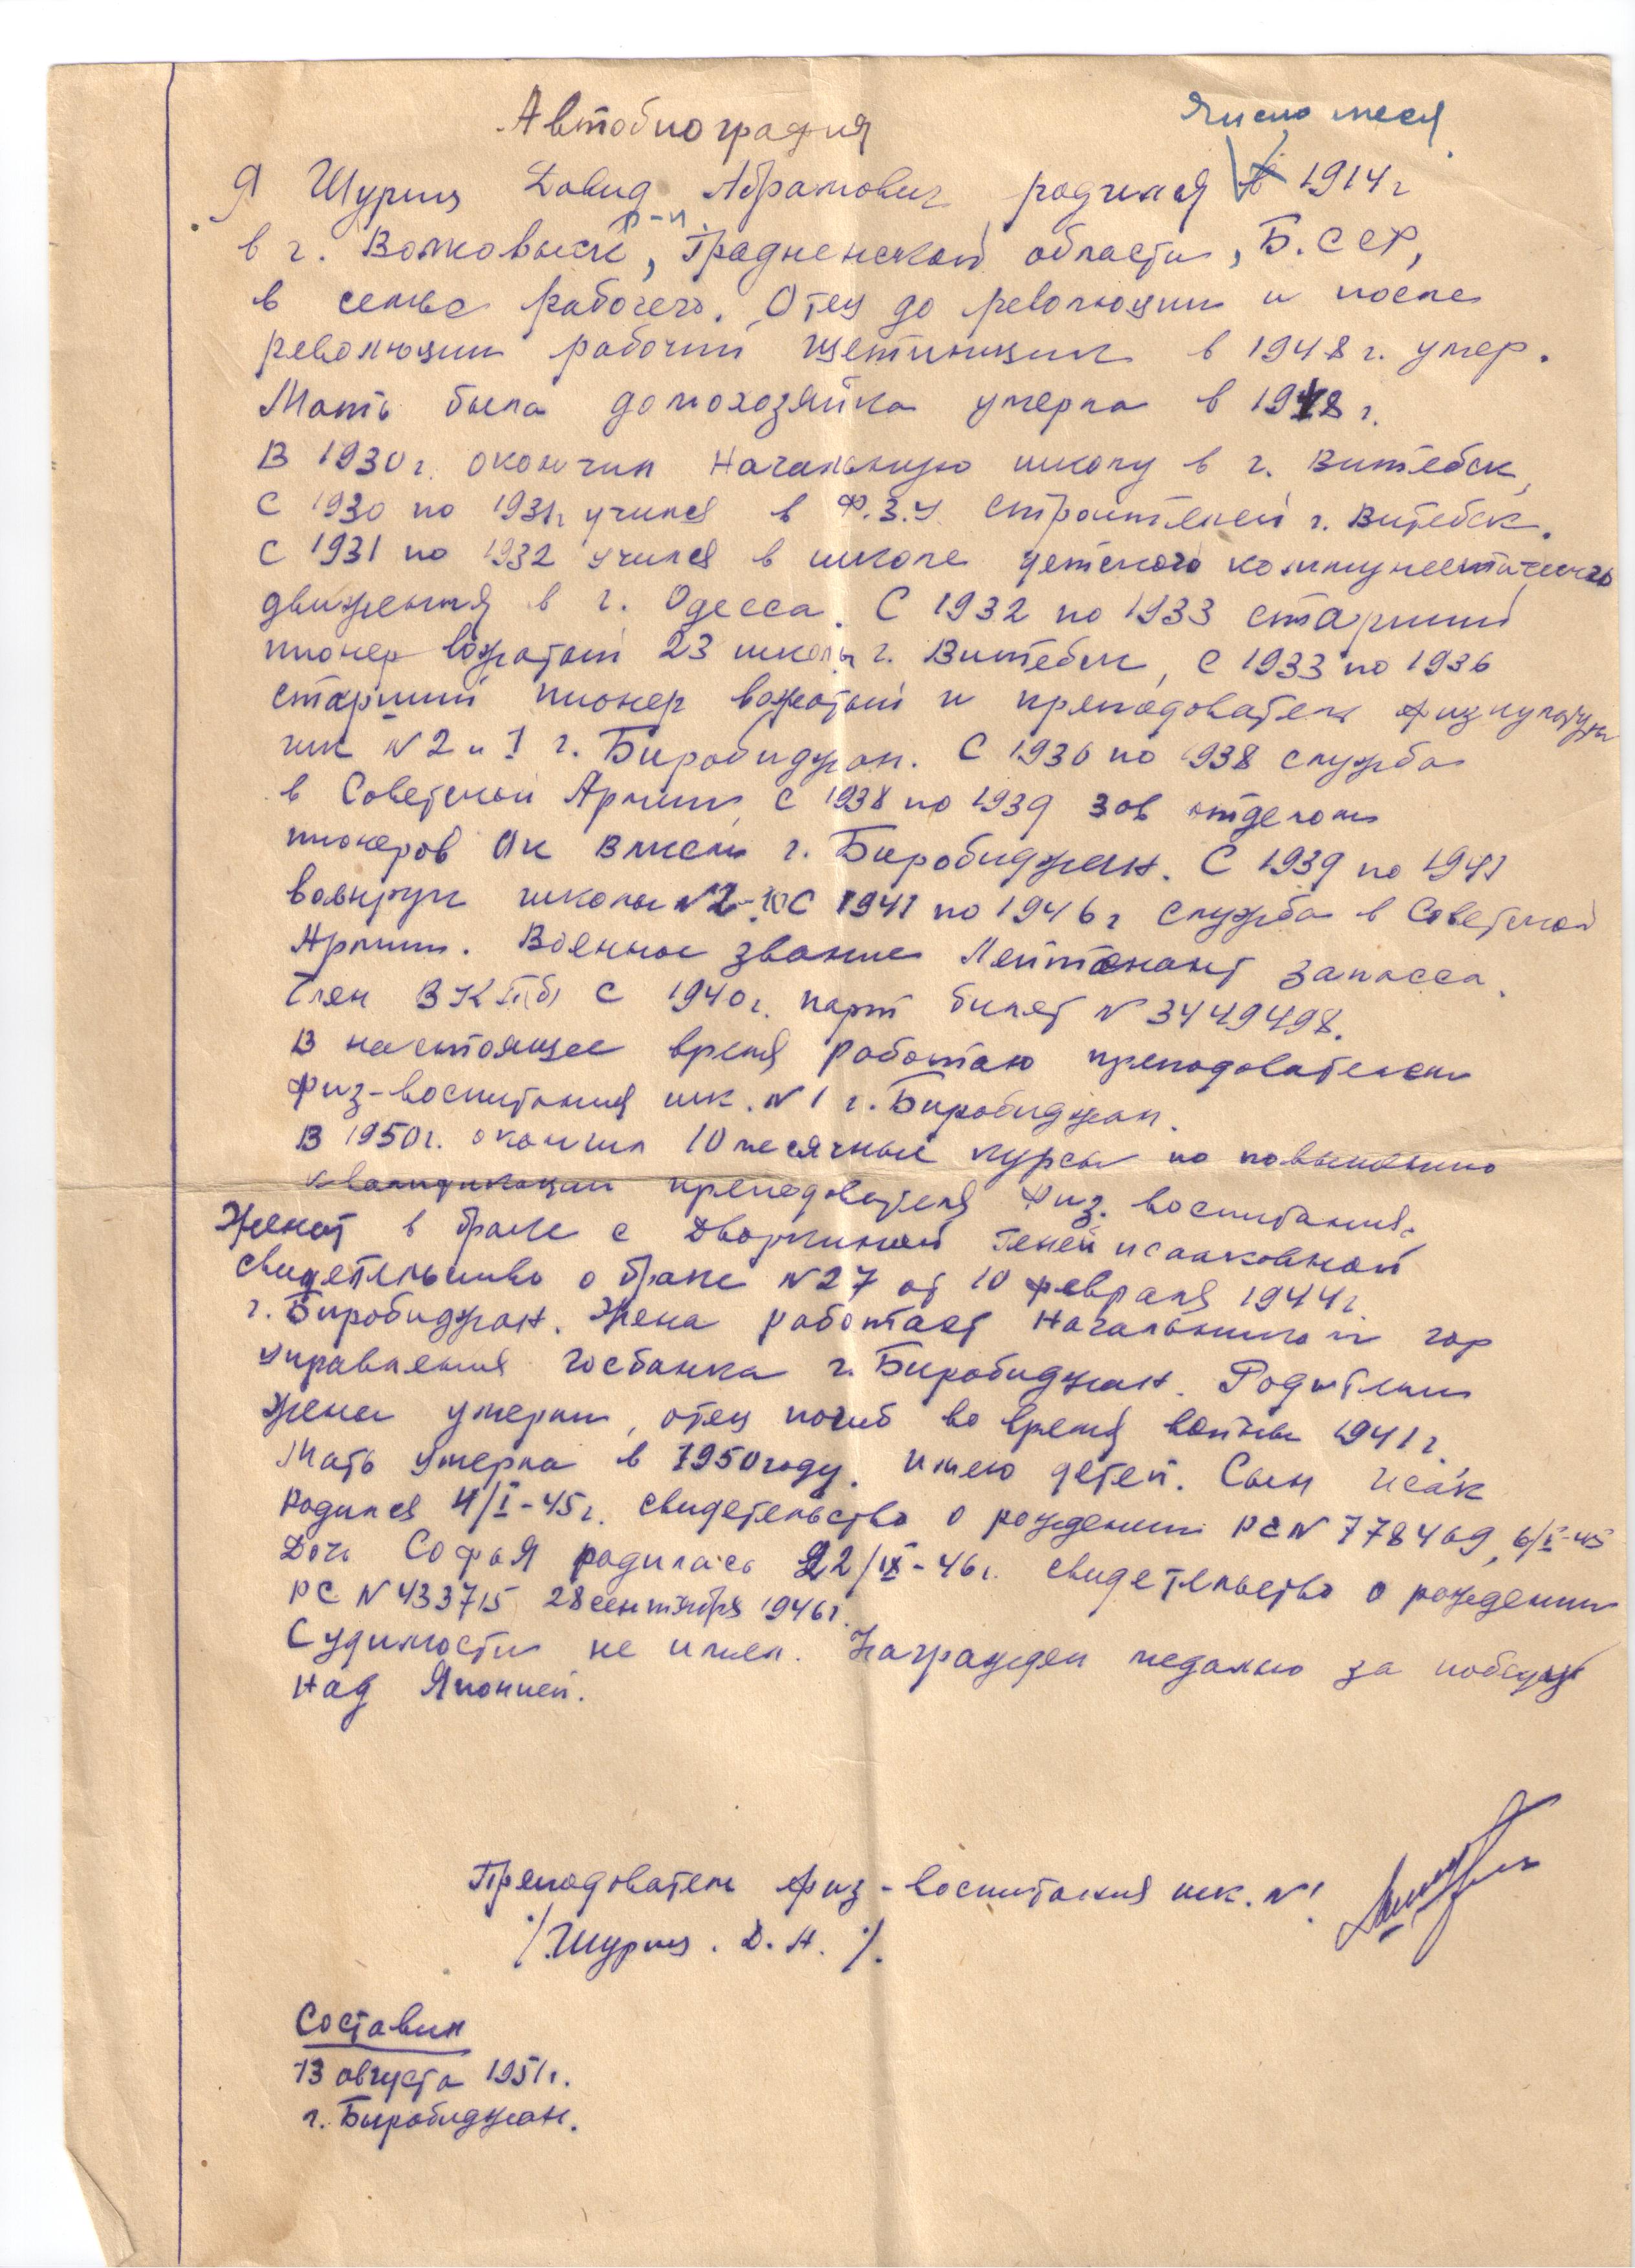 Автобиография
число месяц
Я Шуриц Давид Абрамович родился в 1914 г
р-н.
в г. Волковыск, Градненской области, Б.ССР,
в семье рабочего. Отец до революции и после
революции рабочий щетинщик в 1948 г. умер.
Мать была домохозяйка умерла в 1918 г.
В 1930 г. окончил Начальную школу в г. Витебск,
С 1930 по 1931 г учился в Ф.З.У. строителей г. Витебск.
С 1931 по 1932 учился в школе детского коммунистического
движения в г. Одесса. С 1932 по 1933 старший
пионер вожатый 23 школы г. Витебск, С 1933 по 1936
старший пионер вожатый и преподаватель физкультуры
шк N 2 и 1 г. Биробиджан. С 1936 по 1938 служба
в Советской Армии, с 1938 по 1939 зав отделом
пионеров Ок Влксм г. Биробиджан. С 1939 по 1941
военрук школы N 2 С 1941 по 1946 г служба в Советской
Армии. Военное звание Лейтенант запасса.
Член ВКП(б) с 1940 г. парт билет N 3449498.
В настоящее время работаю преподователем
физ-воспитания шк. N 1 г. Биробиджан.
В 1950 г. окончил 10 месячные курсы по повышению
квалификации преподователя физ. воспитания.
Женат в браке с Дворкиной Геней исааковной
свидетельство о браке N 27 от 10 февраля 1944 г.
г. Биробиджан. Жена работает Начальником гор
управления госбанка г. Биробиджан. Родители
жены умерли, отец погиб во время войны 1941 г
Мать умерла в 1950 году. имею детей. Сын Исак
родился 4/I-45 г. свидетельство о рождении РС N 778469, 6/I-45
Дочь Софья родилась 22/IX-46 г. свидетельство о рождении
РС N 433715 28 сентября 1946 г.
Судимости не имел. Награжден медалью за победу
Над Японией.
Преподователь физ-воспитания шк. N 1
/Шуриц. Д. А. /.
Составил
13 августа 1951 г.
г. Биробиджан.